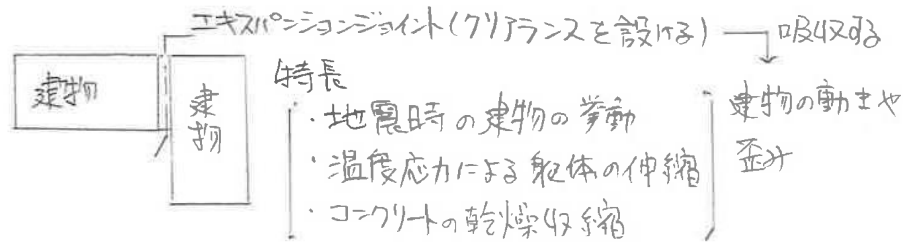 エキスパンションジョイント(クリアランスを設ける) → 吸収する
建物
建物
特長
・地震時の建物の挙動
・温度応力による躯体の伸縮
・コンクリートの乾燥収縮
建物の動きや
歪み